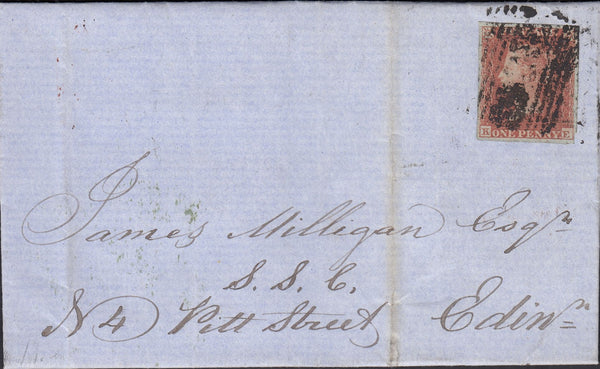 K ONE PENNY E
James Milligan Esqr
S. S. C.
N 4 Pitt Street Edinr